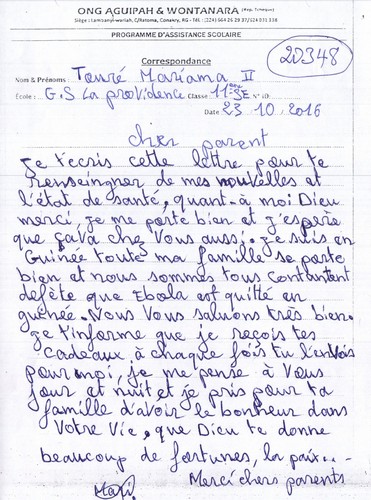 ONG AGUIPAH & WONTANARA (Rép. Tchèque)
Siège : tambanyi-weriah, C/Ratoma, Conakry, RG - Tél. : (224) 664 26 29 37/624 031 338
PROGRAMME D'ASSISTANCE SCOLAIRE
20348
Correspondance
Nom & Prénoms : Touré Mariama II
Ecole : G.S La providence Classe 11ème SE N° ID:
Date 23 10 2016
cher parent
Je t'ecris cette lettre pour te
renseingner de mes nouvelles et
l'état de santé, quant-à moi Dieu
merci, je me porte bien et j'espère
que ça va chez vous aussi. Je suis en
Guinée toute ma famille se porte
bien et nous sommes tous contantent
defète que Ebola est quitté en
guinée. Nous Vous saluons très bien.
Je t'informe que je reçois tes
cadeaux à chaque fois tu l'envois
pour moi, je me pense à Vous
jour et nuit et je pris pour ta
famille d'avoir le bonheur dans
Votre Vie, que Dieu te donne
beaucoup de fortunes, la paix...
Merci chers parents